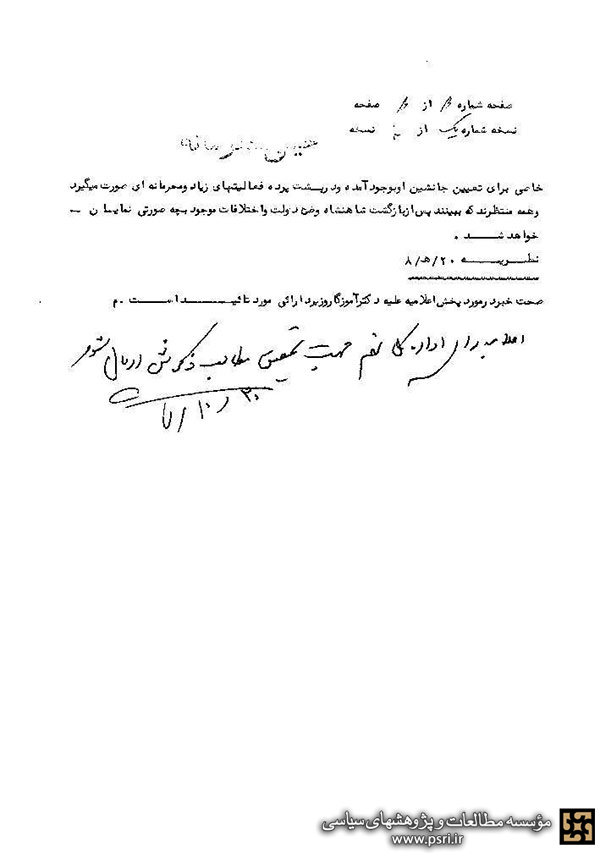 صفحه شماره ۳ از ۳ صفحه
نسخه شماره یک از نسخه
خاصی برای تعیین جانشین او بوجود آمده و در پشت پرده فعالیتهای زیاد و محرمانه ای صورت میگیرد
و همه منتظرند که ببینند پس از بازگشت شاهنشاه وضع دولت و اختلافات موجود بچه صورتی نمایان
خواهد شد .
نظریه ۲۰/ه/۸
صحت خبر در مورد پخش اعلامیه علیه دکتر آموزگار وزیر دارائی مورد تائید است . م
برای اداره کل نهم جهت مطالب ارسال شود
مؤسسه مطالعات و پژوهشهای سیاسی
www.psri.ir